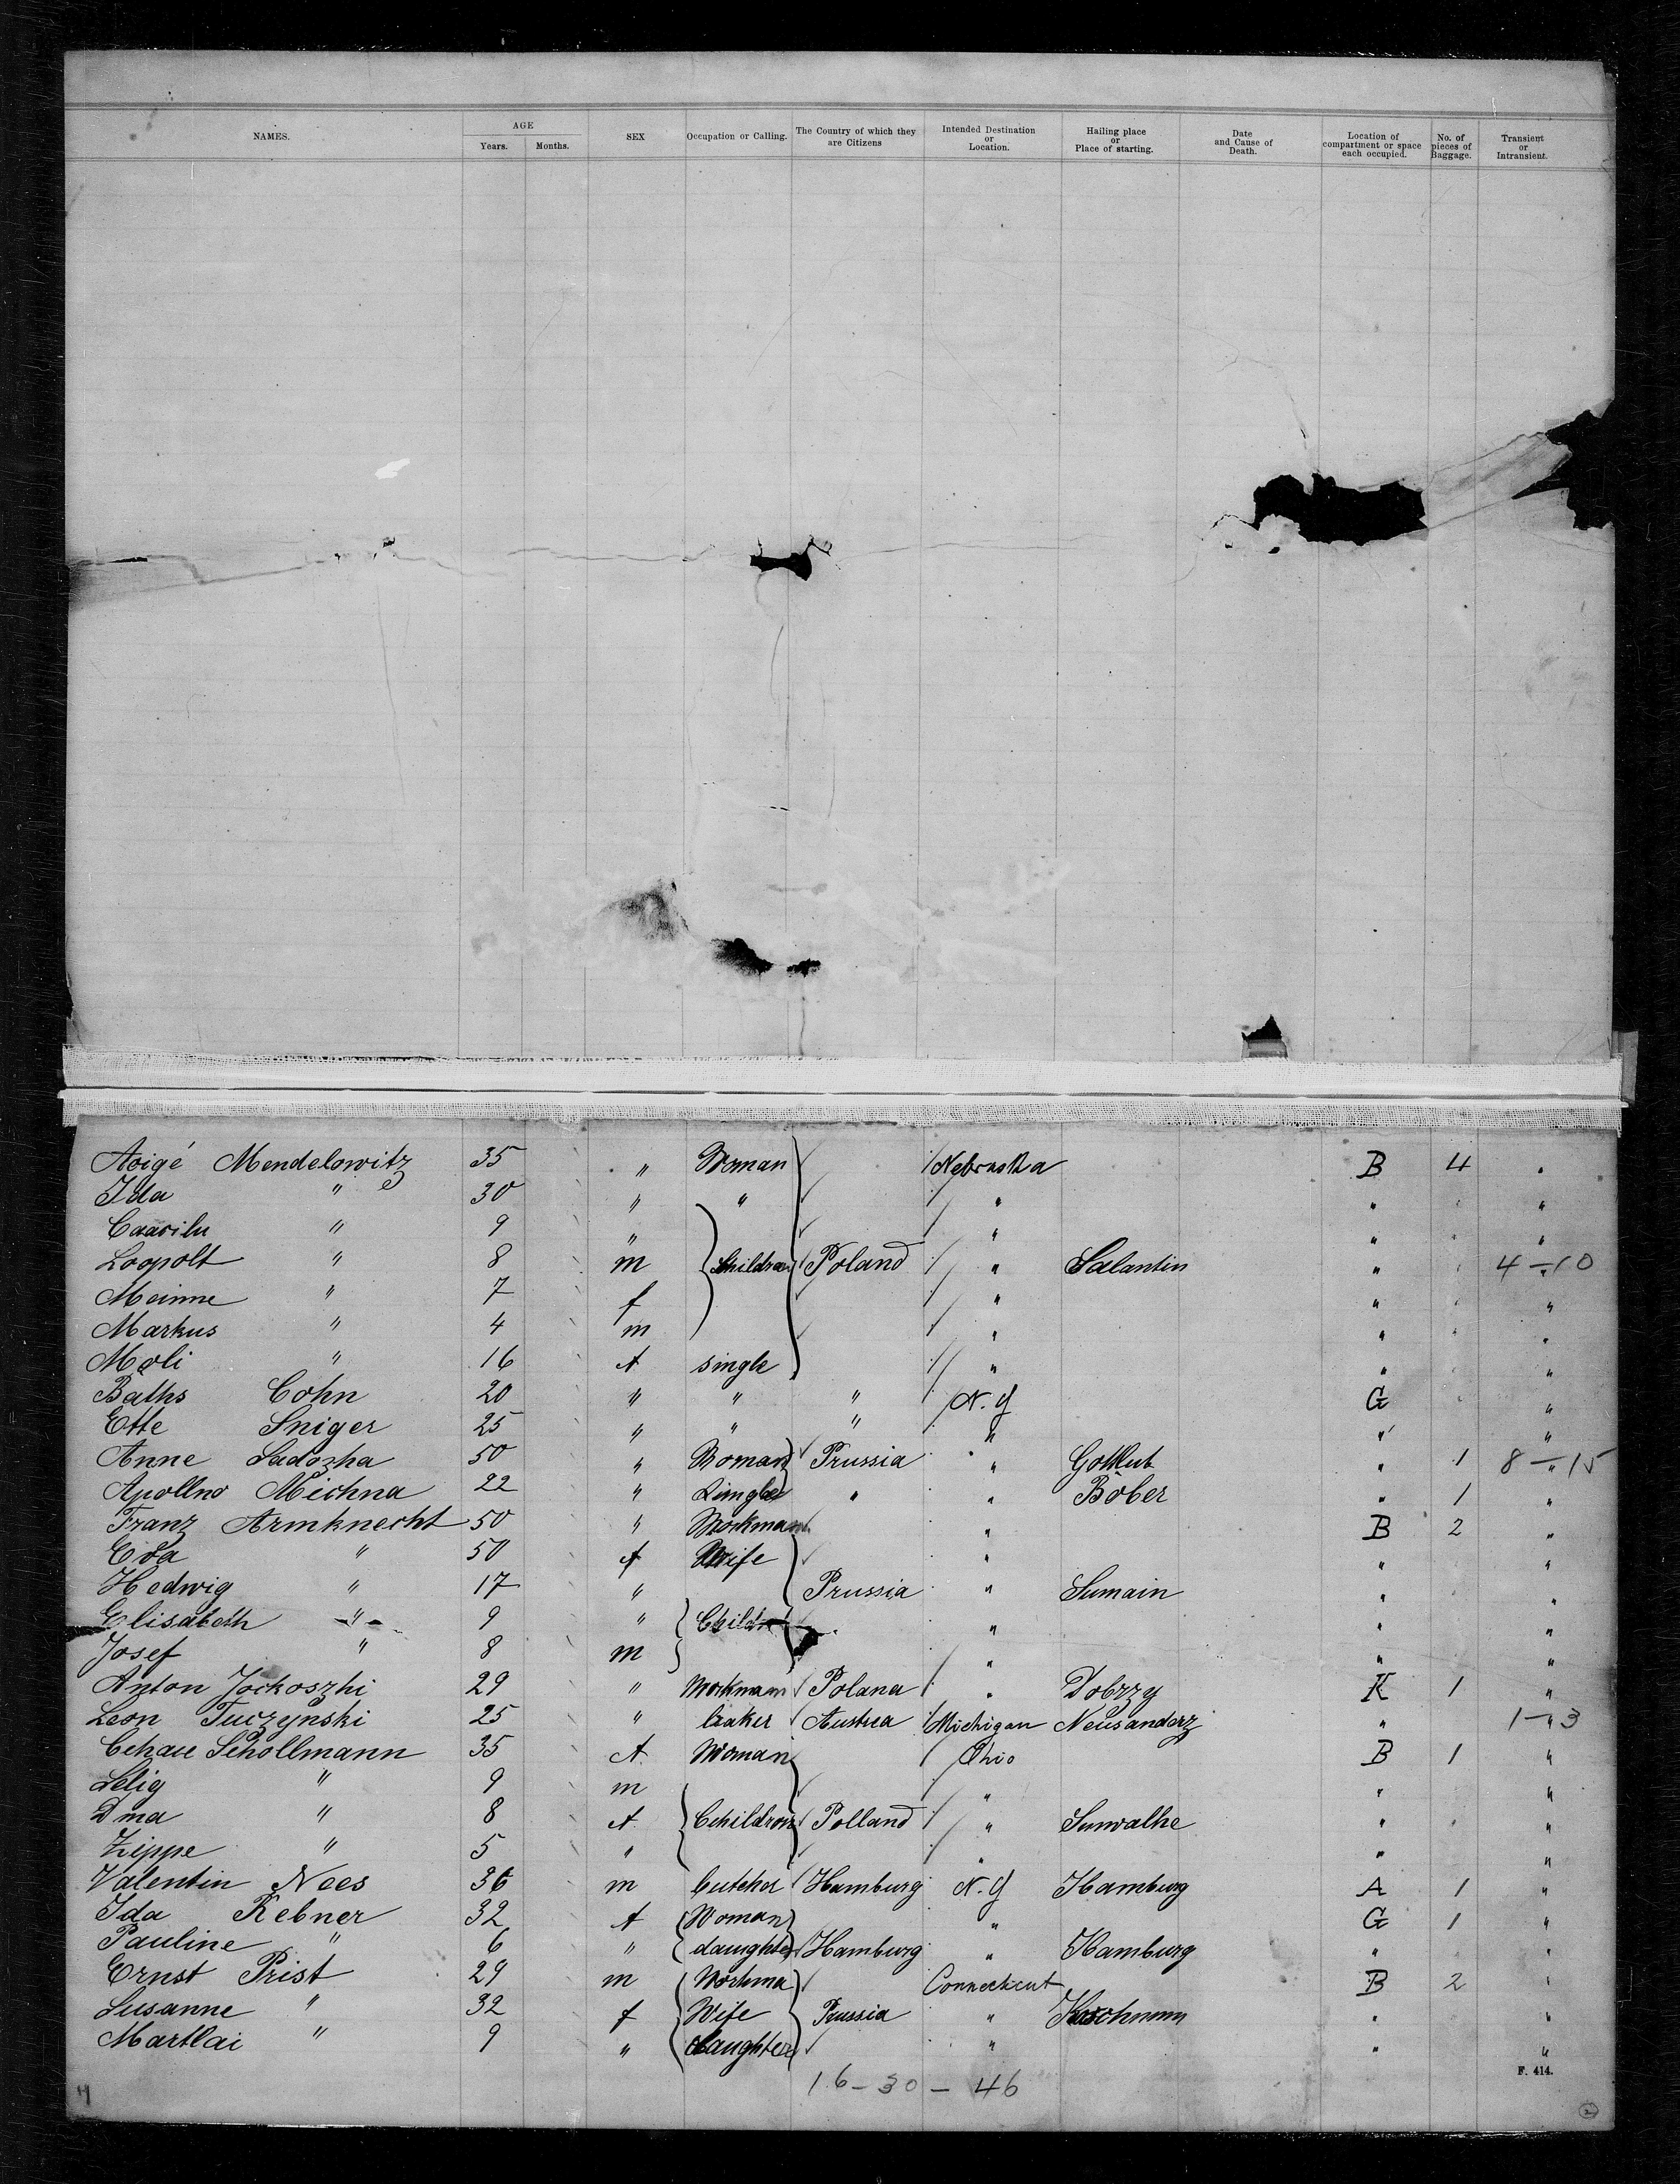 NAMES. AGE Years. Months. SEX Occupation or Calling. The Country of which they are Citizens Intended Destination or Location. Hailing place or Place of starting. Date and Cause of Death. Location of compartment or space each occupied. No. of pieces of Baggage. Transient or Intransient.
Aoigé Mendelowitz 35 " Woman Nebraska B 4 "
Ida " 30 " " " " "
" 9 " " " "
Loopolt " 8 m Children Poland " Salantin " 4-10
Meinne " 7 f " " "
Markus " 4 m " " "
Moli " 16 f single " " "
Baths Cohn 20 " " " N.Y G "
Ette Sniger 25 " " " " " "
Anne Sadozha 50 " Woman Prussia " Gollub " 1 8-15
Apollno Michna 22 " Single " " Bober " 1 "
Franz Armknecht 50 " Workman " B 2 "
Eva " 50 f Wife " " "
Hedwig " 17 " Prussia " Sumain " "
Elisabeth " 9 " Childr " " "
Josef " 8 m " " "
Anton Jockoszhi 29 " Workmann Polana " Dobrzy K 1 "
Leon Tuczynski 25 " baker Austria Michigan Neusanderz " 1-3
Schollmann 35 f Woman Ohio B 1 "
Selig " 9 m " " "
Dma " 8 f Cchildron Polland " Suwalke " "
Zippe " 5 " " " "
Valentin Nees 36 m butcher Hamburg N.Y Hamburg A 1 "
Ida Rebner 32 f Woman " G 1 "
Pauline " 6 " daughter Hamburg " Hamburg " "
Ernst Prist 29 m Workma Connecticut B 2 "
Susanne " 32 f Wife Prussia " " "
Martlai " 9 " daughter " " "
F. 414.
16-30-46